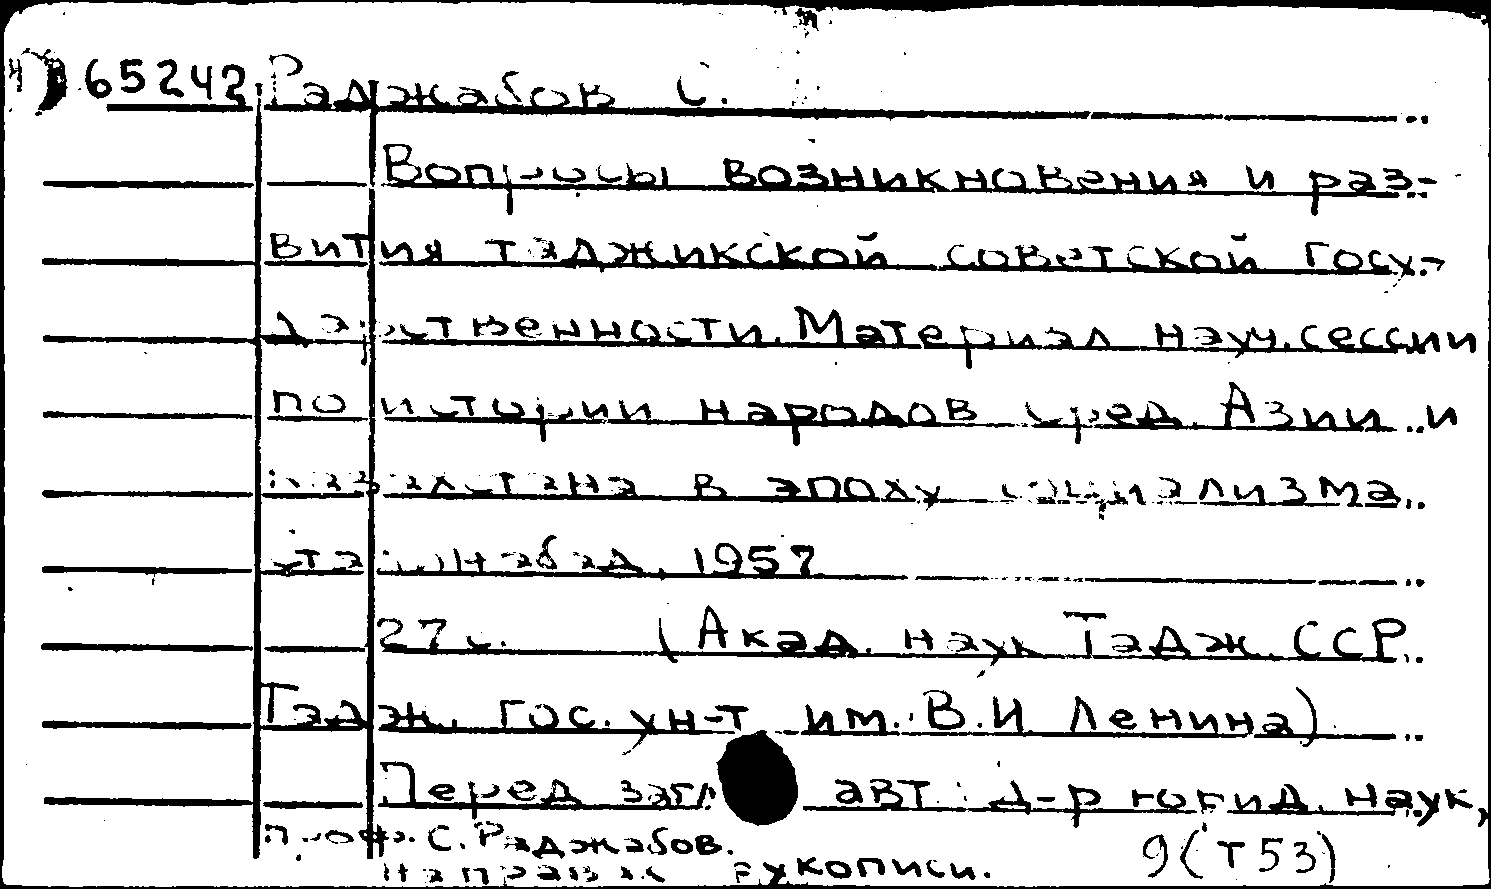 65242 Раджабов С.
Вопросы возникновения и раз-
вития таджикской советской госу-
дарственности. Материал науч. сессии
по истории народов Сред. Азии и
Казахстана в эпоху социализма
Сталинабад, 1957
27 с. (Акад. наук Тадж. ССР
Тадж. гос. ун-т им. В. И Ленина)
Перед загл. авт: д-р юрид. наук,
проф. С. Раджабов.
На правах рукописи.
9(Т53)